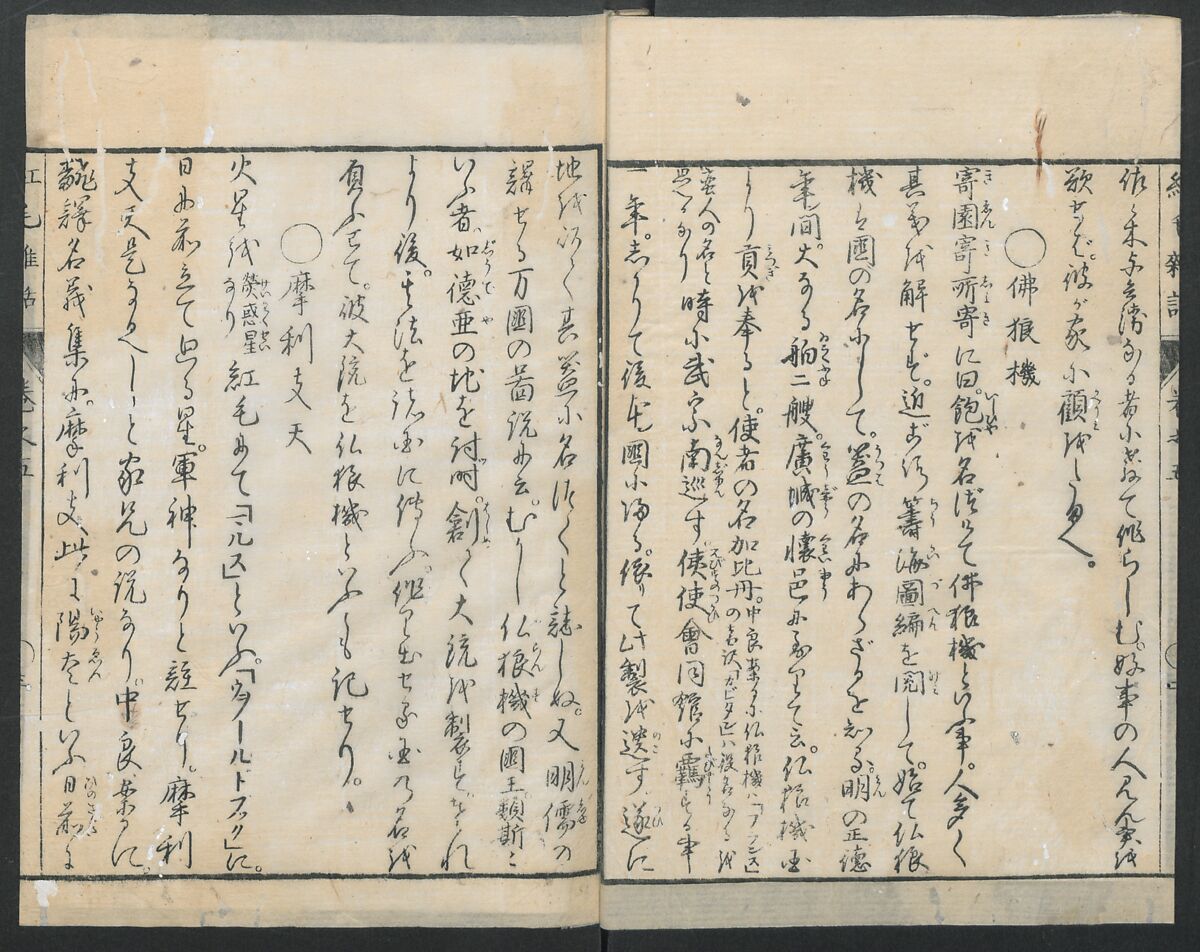 紅毛雜話
巻之五
佐々木与兵衛なる者に與へて作らしむ。好事の人見ん事を
欲せば。彼が家に顧をたまへ。
〇佛狼機
寄園寄所寄に曰。砲を名づけて佛狼機といふ事。人多く
其義を解せず。近ごろ籌海圖編を閲して。始て仏狼
機は國の名にして。器の名にあらざるを知る。明の正德
年間。大なる舶二艘。廣城の懷邑に至りて云。仏狼機国
より貢を奉ると。使者の名加比丹。中良案るに仏狼機ハ「フランス」
の名と時に武宗南巡す。使使會同舘に羈する事
一年。しかりて後本國に歸る。依りて此製を遺す。遂に
地を以て其器に名づくと誌しぬ。又明儒の
譯せる万國の啚説に云。むかし仏狼機の國王類斯と
いふ者。如德亜の地を討時。創て大銃を制す。それ
より後。其法を諸国に傳ふ。作り出せる国の名を
負ふせて。彼大銃を仏狼機といふとも記せり。
〇摩利支天
火星を熒惑星なり紅毛にて「マルス」といふ。「ウヲールドブック」に。
日の前に立て廻る星。軍神なりと註せり。摩利
支天是なるべしと家兄の説なり。中良案るに。
飜譯名義集に。摩利支此に陽炎といふ日前に
紅毛雜話
巻之五